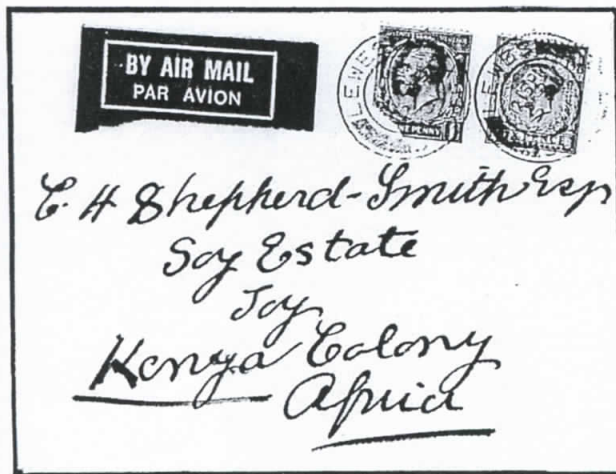 BY AIR MAIL
PAR AVION
LEWES
LEWES
PENNY
C. H Shepherd-Smith Esq
Soy Estate
Soy
Kenya Colony
Africa